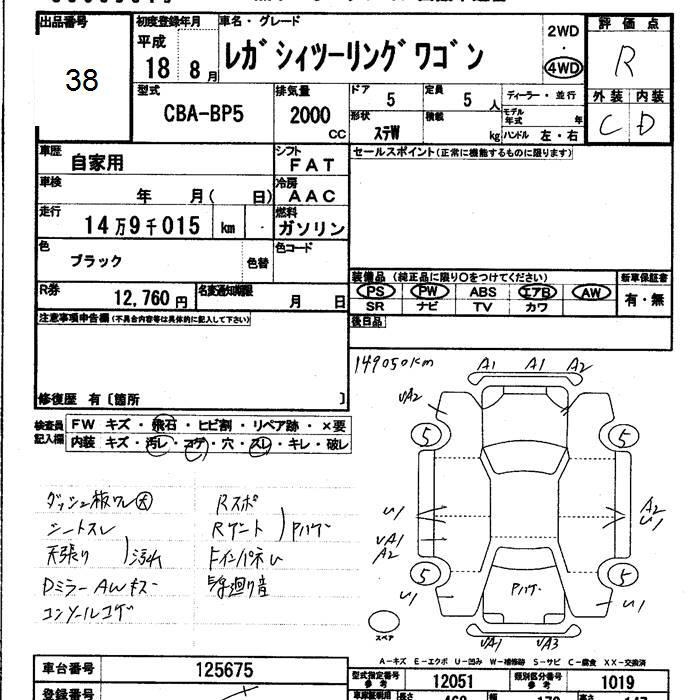 出品番号 初度登録年月 車名・グレード 評価点
38 平成 18 8月 レガシィツーリングワゴン 2WD・4WD R
型式 CBA-BP5 排気量 2000 CC ドア 5 定員 5 人 ディーラー・並行 外装 内装
形状 ステW 積載 kg モデル年式 年 ハンドル 左・右 C D
車歴 自家用 シフト FAT セールスポイント(正常に機能するものに限ります)
車検 年 月( 日) 冷房 AAC
走行 14万9千015 km 燃料 ガソリン
色 ブラック 色替 色コード
装備品 (純正品に限り○をつけてください) 新車保証書
R券 12,760円 名変通知期限 月 日 PS PW ABS エアB AW 有・無
SR ナビ TV カワ
注意事項申告欄(不具合内容等は具体的に記入して下さい) 後日品
149050km A1 A1 A2
修復歴 有〔箇所 〕 UA2
検査員記入欄 FW キズ・飛石・ヒビ割・リペア跡・×要
内装 キズ・汚レ・コゲ・穴・スレ・キレ・破レ
5 5
ダッシュ板ワレ大 Rスポ
シートスレ Rゲート Pハゲ U1 A2 U1
天張り 汚れ UA1 A2
DミラーAWキズ 5 5
コンソールコゲ Pハゲ U1 U1
スペア UA1 UA3
A-キズ E-エクボ U-凹み W-補修跡 S-サビ C-腐食 XX-交換済
車台番号 125675 型式指定番号 参考 12051 類別区分番号 参考 1019
登録番号 長さ 468 幅